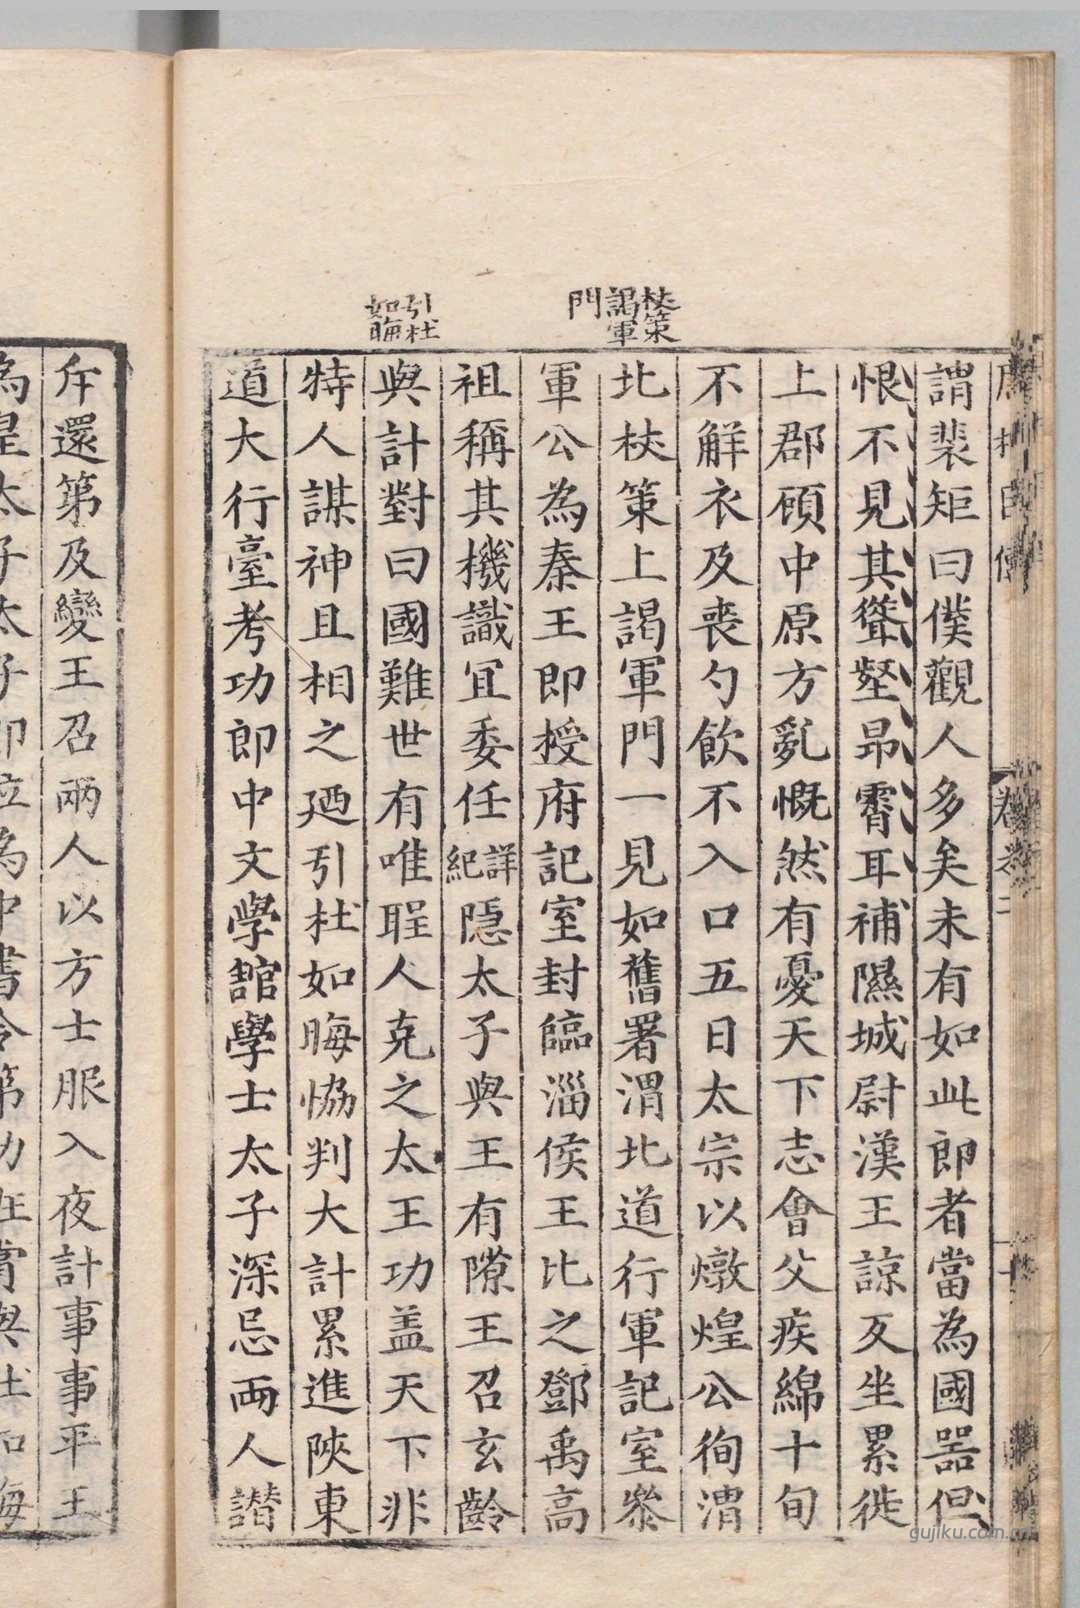 杖策
謁軍
門
引杜
如晦
謂裴矩曰僕觀人多矣未有如此郎者當為國器但
恨不見其聳壑昂霄耳補隰城尉漢王諒反坐累徙
上郡顧中原方亂慨然有憂天下志會父疾綿十旬
不解衣及喪勺飲不入口五日太宗以燉煌公徇渭
北杖策上謁軍門一見如舊署渭北道行軍記室參
軍公為秦王即授府記室封臨淄侯王比之鄧禹高
祖稱其機識宜委任詳紀隱太子與王有隙王召玄齡
與計對曰國難世有唯聖人克之大王功盖天下非
特人謀神且相之廼引杜如晦協判大計累進陝東
道大行臺考功郎中文學舘學士太子深忌兩人譖
斥還第及變王召兩人以方士服入夜計事事平王
gujiku.com